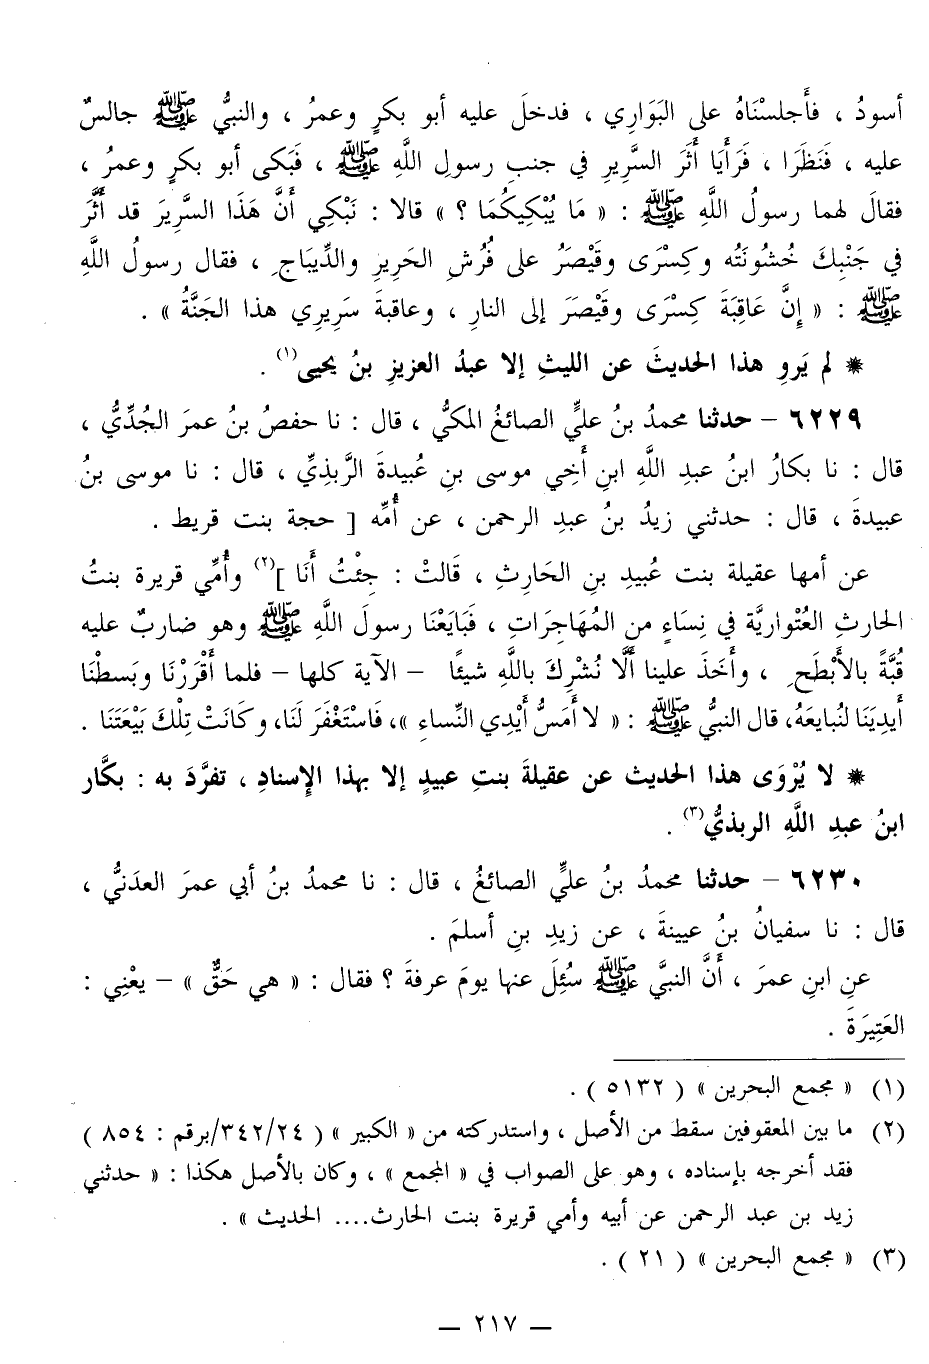 أسودُ ، فأَجلسْنَاهُ على البَوَارِي ، فدخلَ عليه أبو بكرٍ وعمرُ ، والنبيُّ ﷺ جالسٌ
عليه ، فَنَظَرَا ، فَرَأَيَا أَثَرَ السَّرِيرِ في جنبِ رسولِ اللَّهِ ﷺ ، فَبَكى أبو بكرٍ وعمرُ ،
فقالَ لهما رسولُ اللَّهِ ﷺ : « مَا يُبْكِيكُمَا ؟ » قالا : نَبْكِي أَنَّ هَذَا السَّرِيرَ قد أثَّرَ
في جَنْبِكَ خُشُونَتُه وكِسْرَى وقَيْصَرُ على فُرُشِ الحَرِيرِ والدِّيبَاجِ ، فقال رسولُ اللَّهِ
ﷺ : « إِنَّ عَاقِبَةَ كِسْرَى وقَيْصَرَ إلى النارِ ، وعاقبةَ سَرِيرِي هذا الجَنَّةُ » .
* لم يَروِ هذا الحديثَ عن الليثِ إلا عبدُ العزيزِ بنُ يحيى(١) .
٦٢٢٩ – حدثنا محمدُ بنُ عليٍّ الصائغُ المكيُّ ، قال : نا حفصُ بنُ عمرَ الجُدِّيُّ ،
قال : نا بكارُ ابنُ عبدِ اللَّهِ ابنِ أَخِي موسى بنِ عُبيدةَ الرَّبذِيِّ ، قال : نا موسى بنُ
عبيدةَ ، قال : حدثني زيدُ بنُ عبدِ الرحمن ، عن أُمِّه [ حجة بنت قريط .
عن أمها عقيلة بنت عُبيدِ بنِ الحَارِثِ ، قَالتْ : جِئْتُ أَنَا ](٢) وأُمِّي قريرة بنتُ
الحارثِ العُتْوارِيَّة في نِسَاءٍ من المُهَاجرَاتِ ، فَبَايَعْنَا رسولَ اللَّهِ ﷺ وهو ضاربٌ عليه
قُبَّةً بالأَبْطَحِ ، وأَخَذَ علينا أَلَّا نُشْرِكَ باللَّهِ شيئًا – الآية كلها – فلما أَقْرَرْنَا وبَسطْنَا
أَيدِيَنَا لنُبايعَهُ، قال النبيُّ ﷺ : « لا أَمَسُّ أَيْدِي النِّساءِ »، فَاسْتَغْفَرَ لَنَا، وكَانَتْ تِلْكَ بَيْعَتَنَا .
* لا يُرْوَى هذا الحديث عن عقيلةَ بنتِ عبيدٍ إلا بهذا الإِسنادِ ، تفرَّدَ به : بكَّار
ابنُ عبدِ اللَّهِ الربذيُّ(٣) .
٦٢٣٠ – حدثنا محمدُ بنُ عليٍّ الصائغُ ، قال : نا محمدُ بنُ أبي عمرَ العدَنيُّ ،
قال : نا سفيانُ بنُ عيينةَ ، عن زيدِ بنِ أسلمَ .
عنِ ابنِ عمرَ ، أَنَّ النبيَّ ﷺ سُئِلَ عنها يومَ عرفةَ ؟ فقال : « هي حَقٌّ » – يعْنِي :
العَتِيرَةَ .
(١) « مجمع البحرين » ( ٥١٣٢ ) .
(٢) ما بين المعقوفين سقط من الأصل ، واستدركته من « الكبير » ( ٣٤٢/٢٤/برقم : ٨٥٤ )
فقد أخرجه بإسناده ، وهو على الصواب في « المجمع » ، وكان بالأصل هكذا : « حدثني
زيد بن عبد الرحمن عن أبيه وأمي قريرة بنت الحارث.... الحديث » .
(٣) « مجمع البحرين » ( ٢١ ) .
— ٢١٧ —